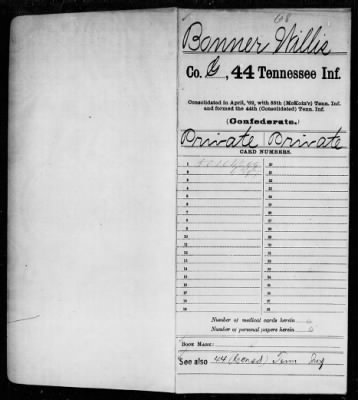 68
Bonner Willis
Co. G, 44 Tennessee Inf.
Consolidated in April, '62, with 55th (McKoin's) Tenn. Inf.
and formed the 44th (Consolidated) Tenn. Inf.
(Confederate.)
Private Private
CARD NUMBERS.
1
2
3
4
5
6
7
8
9
10
11
12
13
14
15
16
17
18
19
20
21
22
23
24
25
26
27
28
29
30
31
32
Number of medical cards herein 0
Number of personal papers herein 0
BOOK MARK:
See also 44 (Consd) Tenn Inf